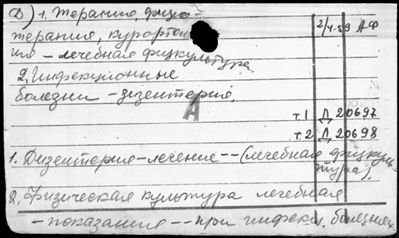 Д) 1. Терапия, физио
терапия, курортоло
гия – лечебная физкультура
2/4-59 АФ
2. Инфекционные
болезни – дизентерия.
А
т1 Д 20697
т2 Д 20698
1. Дизентерия – лечение -- (лечебная физкуль-
тура).
2. Физическая культура лечебная
– показания -- при инфекц. болезнях